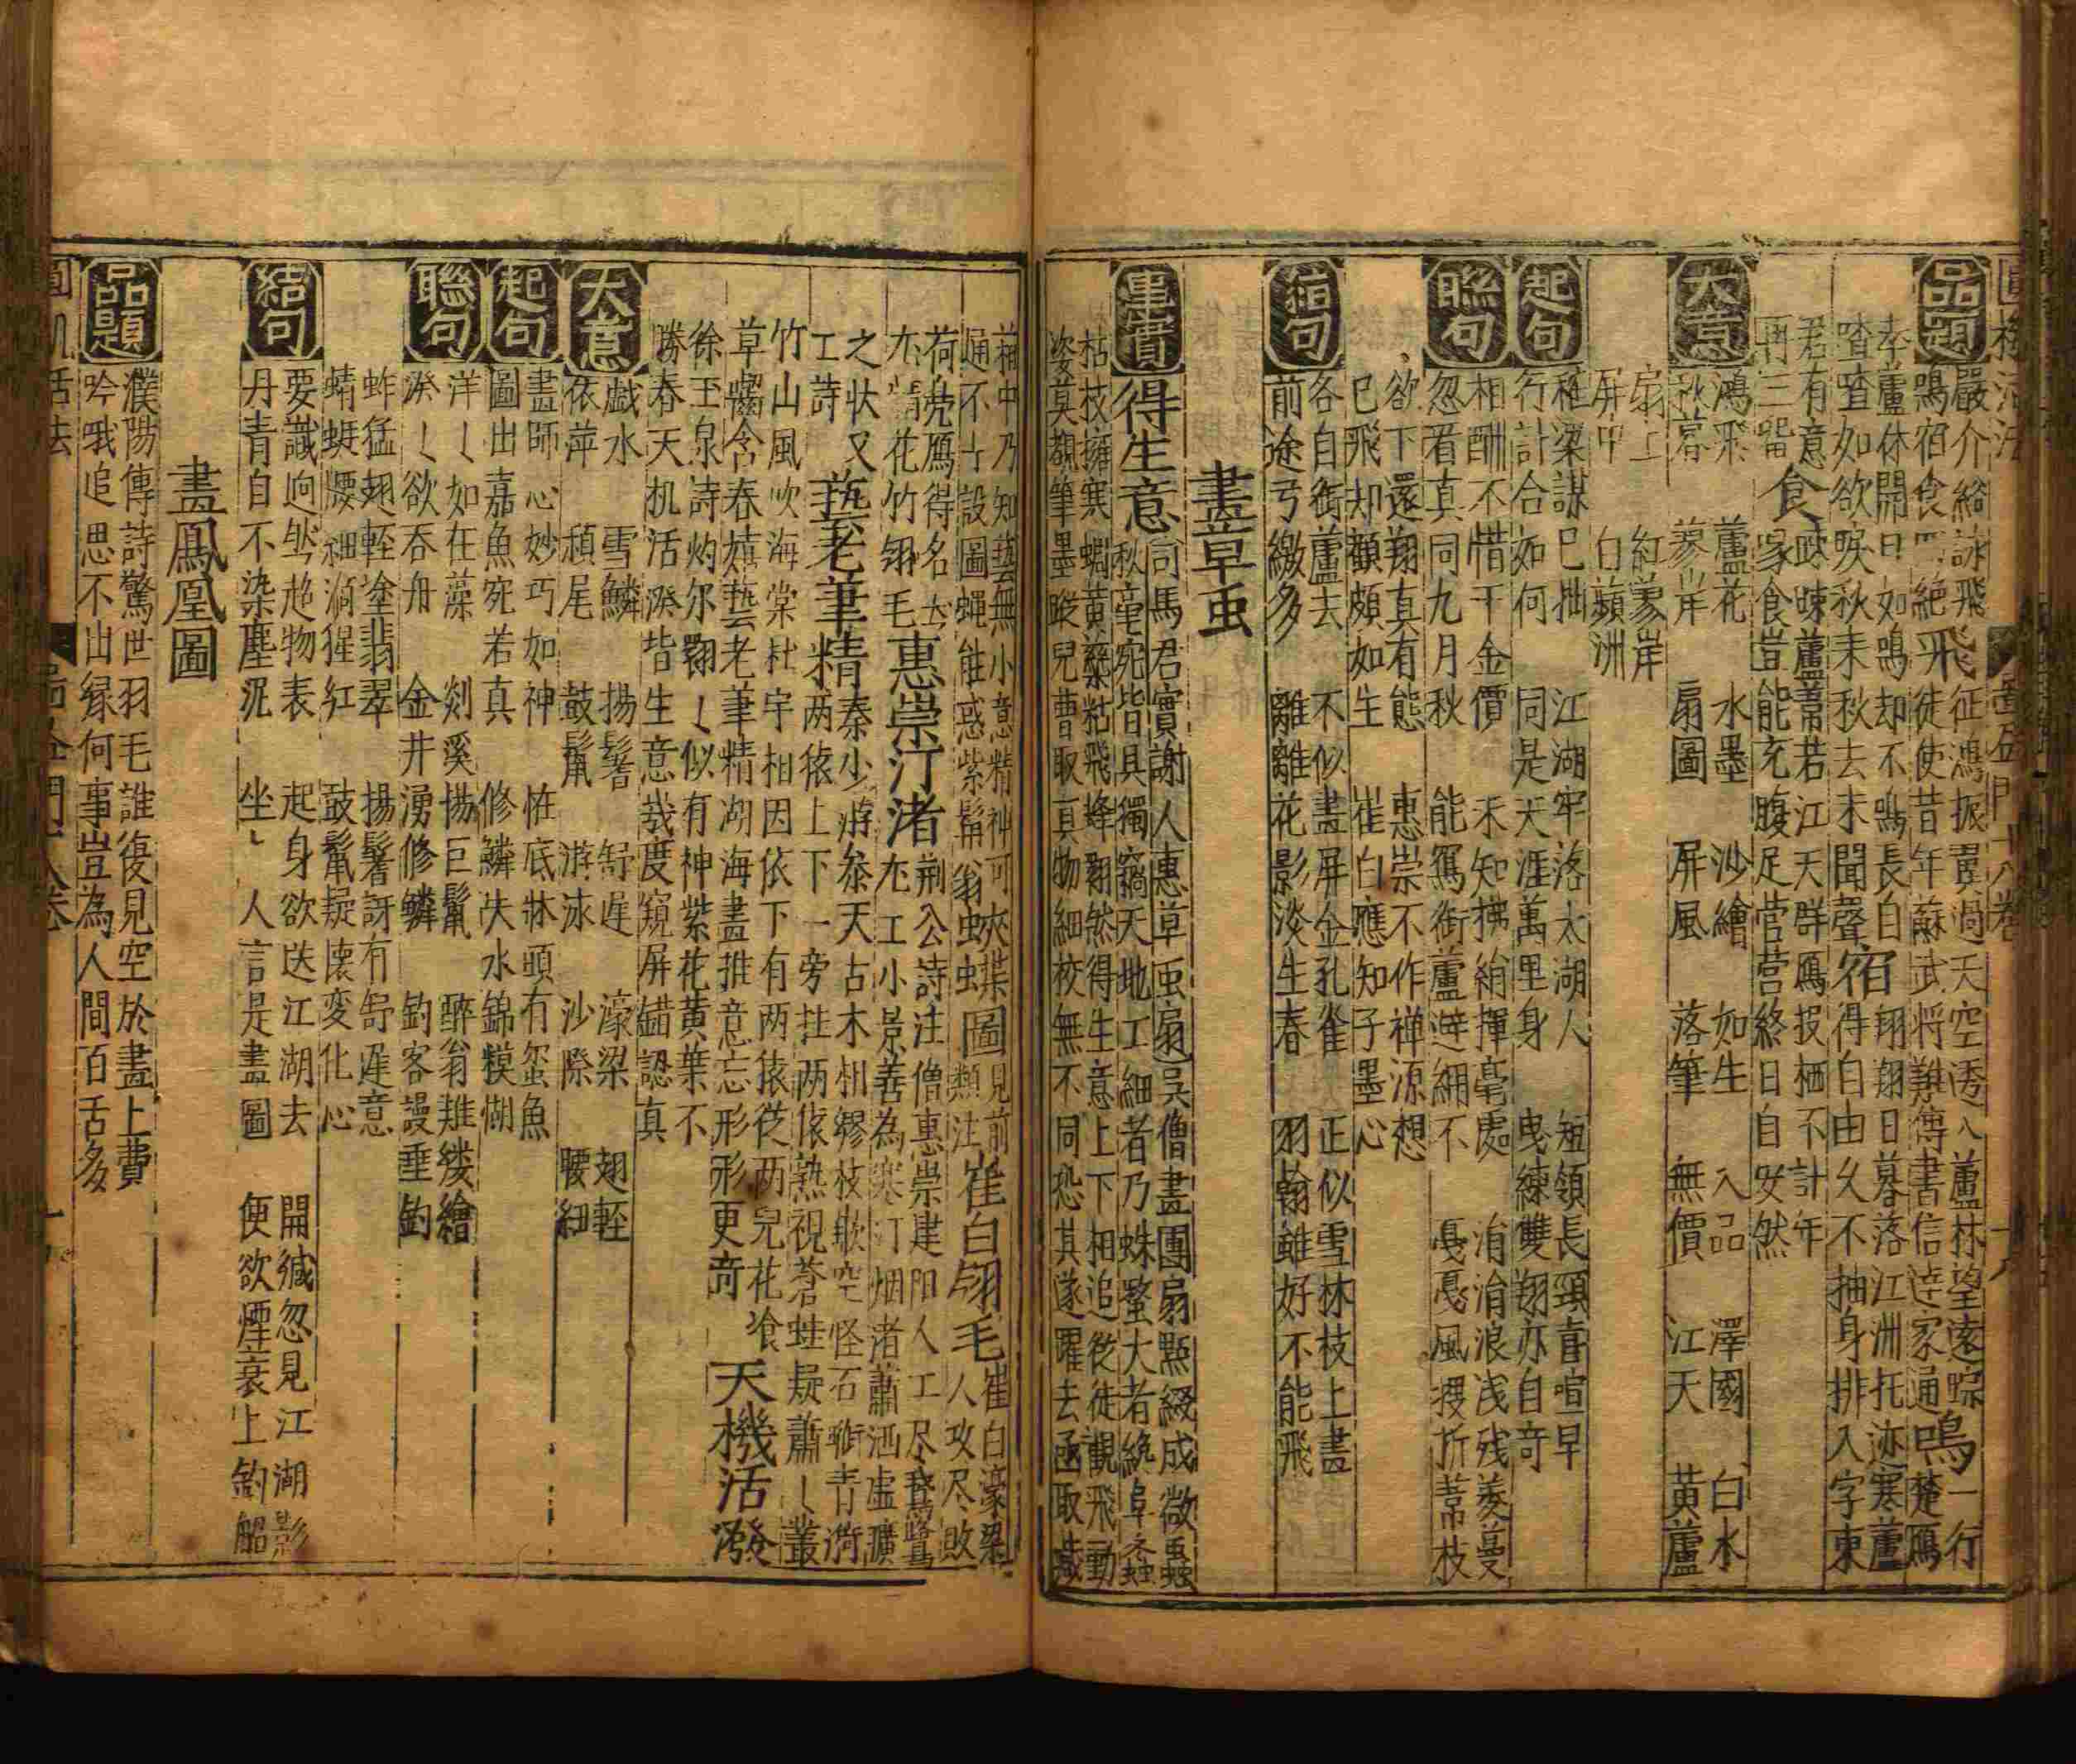 品題
嚴介谿詠飛鳴宿食四絶
飛
征鴻振翼過天空透入蘆林望遠踪
徒使昔年蘇武將難傳書信達家通
鳴
一行楚鴈
奔蘆休開口如鳴却不鳴長自
喳喳如欲唳秋来秋去未聞聲
宿
翔翔日暮落江洲托迹寒蘆
得自由久不抽身排入字東
君有意
食
啄啑蘆蒿若江天群鴈投栖不計年
家食豈能充腹足営营終日自安然
大意
鴻飛 蘆花 水墨 沙繪 如生 入品 澤國 白水
秋暮 蓼岸 扇圖 屏風 落筆 無價 江天 黄蘆
扇上 紅蓼岸
屏中 白蘋洲
起句
稚梁謀已拙 江湖牢落太湖人 短領長頸喜喧早
行計合如何 同是天涯萬里身 曳練雙翔亦自奇
聯句
相酬不惜千金價 未知拂絹揮毫處 涓涓浪浅残菱蔓
忽看真同九月秋 能寫銜蘆避網不 戞戞風搜折葦枝
欲下還翔真有態 惠崇不作禅源想
已飛却顧頗如生 崔白應知子墨心
結句
各自銜蘆去 不似畫屏金孔雀 正似雪林枝上畫
前途弓繳多 離離花影淡生春 羽翰雖好不能飛
畫草虫
事實
得生意
司馬君實謝人惠草虫扇吳僧畫團扇點綴成微蟲
秋毫宛皆具獨竊天地工細者乃蛛蝥大者纔阜螽
枯枝擁寒蜩黄蘂粘飛蜂翾然得生意上下相追從徒觀飛動
姿莫顴筆墨蹤兒曹取真物細校無不同恐其遂躍去亟取藏
箱中乃知藝無小意精神可
通不 設圖蝿能惑紫髯翁
蛺蝶圖
見前類注
崔白翎毛
崔白濠梁人攻尽敗
荷鳬鴈得名
尤精花竹翎毛
惠崇汀渚
荆公詩注僧惠崇建阳人工尽鵞鴈鷺
尤工小景善為寒汀烟渚蕭洒虚曠
之状又工詩
藝老筆精
秦少游叅天古木相繆枝嵌空怪石衝青漪
两猿上下一旁拄两猿熟視蒼蛙疑蕭蕭叢
竹山風吹海棠杜宇相因依下有两猿從两兒花飡
草齧含春嬉藝老筆精湖海畫推意忘形形更竒
天機活潑
徐玉泉詩灼尔翾翾似有神紫花黄葉不
勝春天机活潑皆生意哉度窺屏錯認真
大意
戯水 雪鱗 揚鬐 舒遲 濠梁 翅輕
依萍 頳尾 鼓鬣 游泳 沙際 腰細
起句
畫師心妙巧如神 怪底牀頭有蛩魚
圖出嘉魚宛若真 修鱗失水錦糢糊
聯句
洋洋如在藻 剡溪揚巨鬣 醉翁雖縷繪
潑潑欲吞舟 金井湧修鱗 釣客謾垂釣
蚱蜢翅輕塗翡翠 揚鬐訝有舒遲意
蜻蜓腰細滴猩紅 鼓鬣疑懐変化心
結句
要識逈然超物表 起身欲迭江湖去 開緘忽見江湖影
丹青自不染塵泥 坐坐人言是畫圖 便欲煙蓑上釣船
畫鳳凰圖
品題
濮陽傳詩驚世羽毛誰復見空於畫上費
吟哦追思不出緑何事豈為人間百舌多